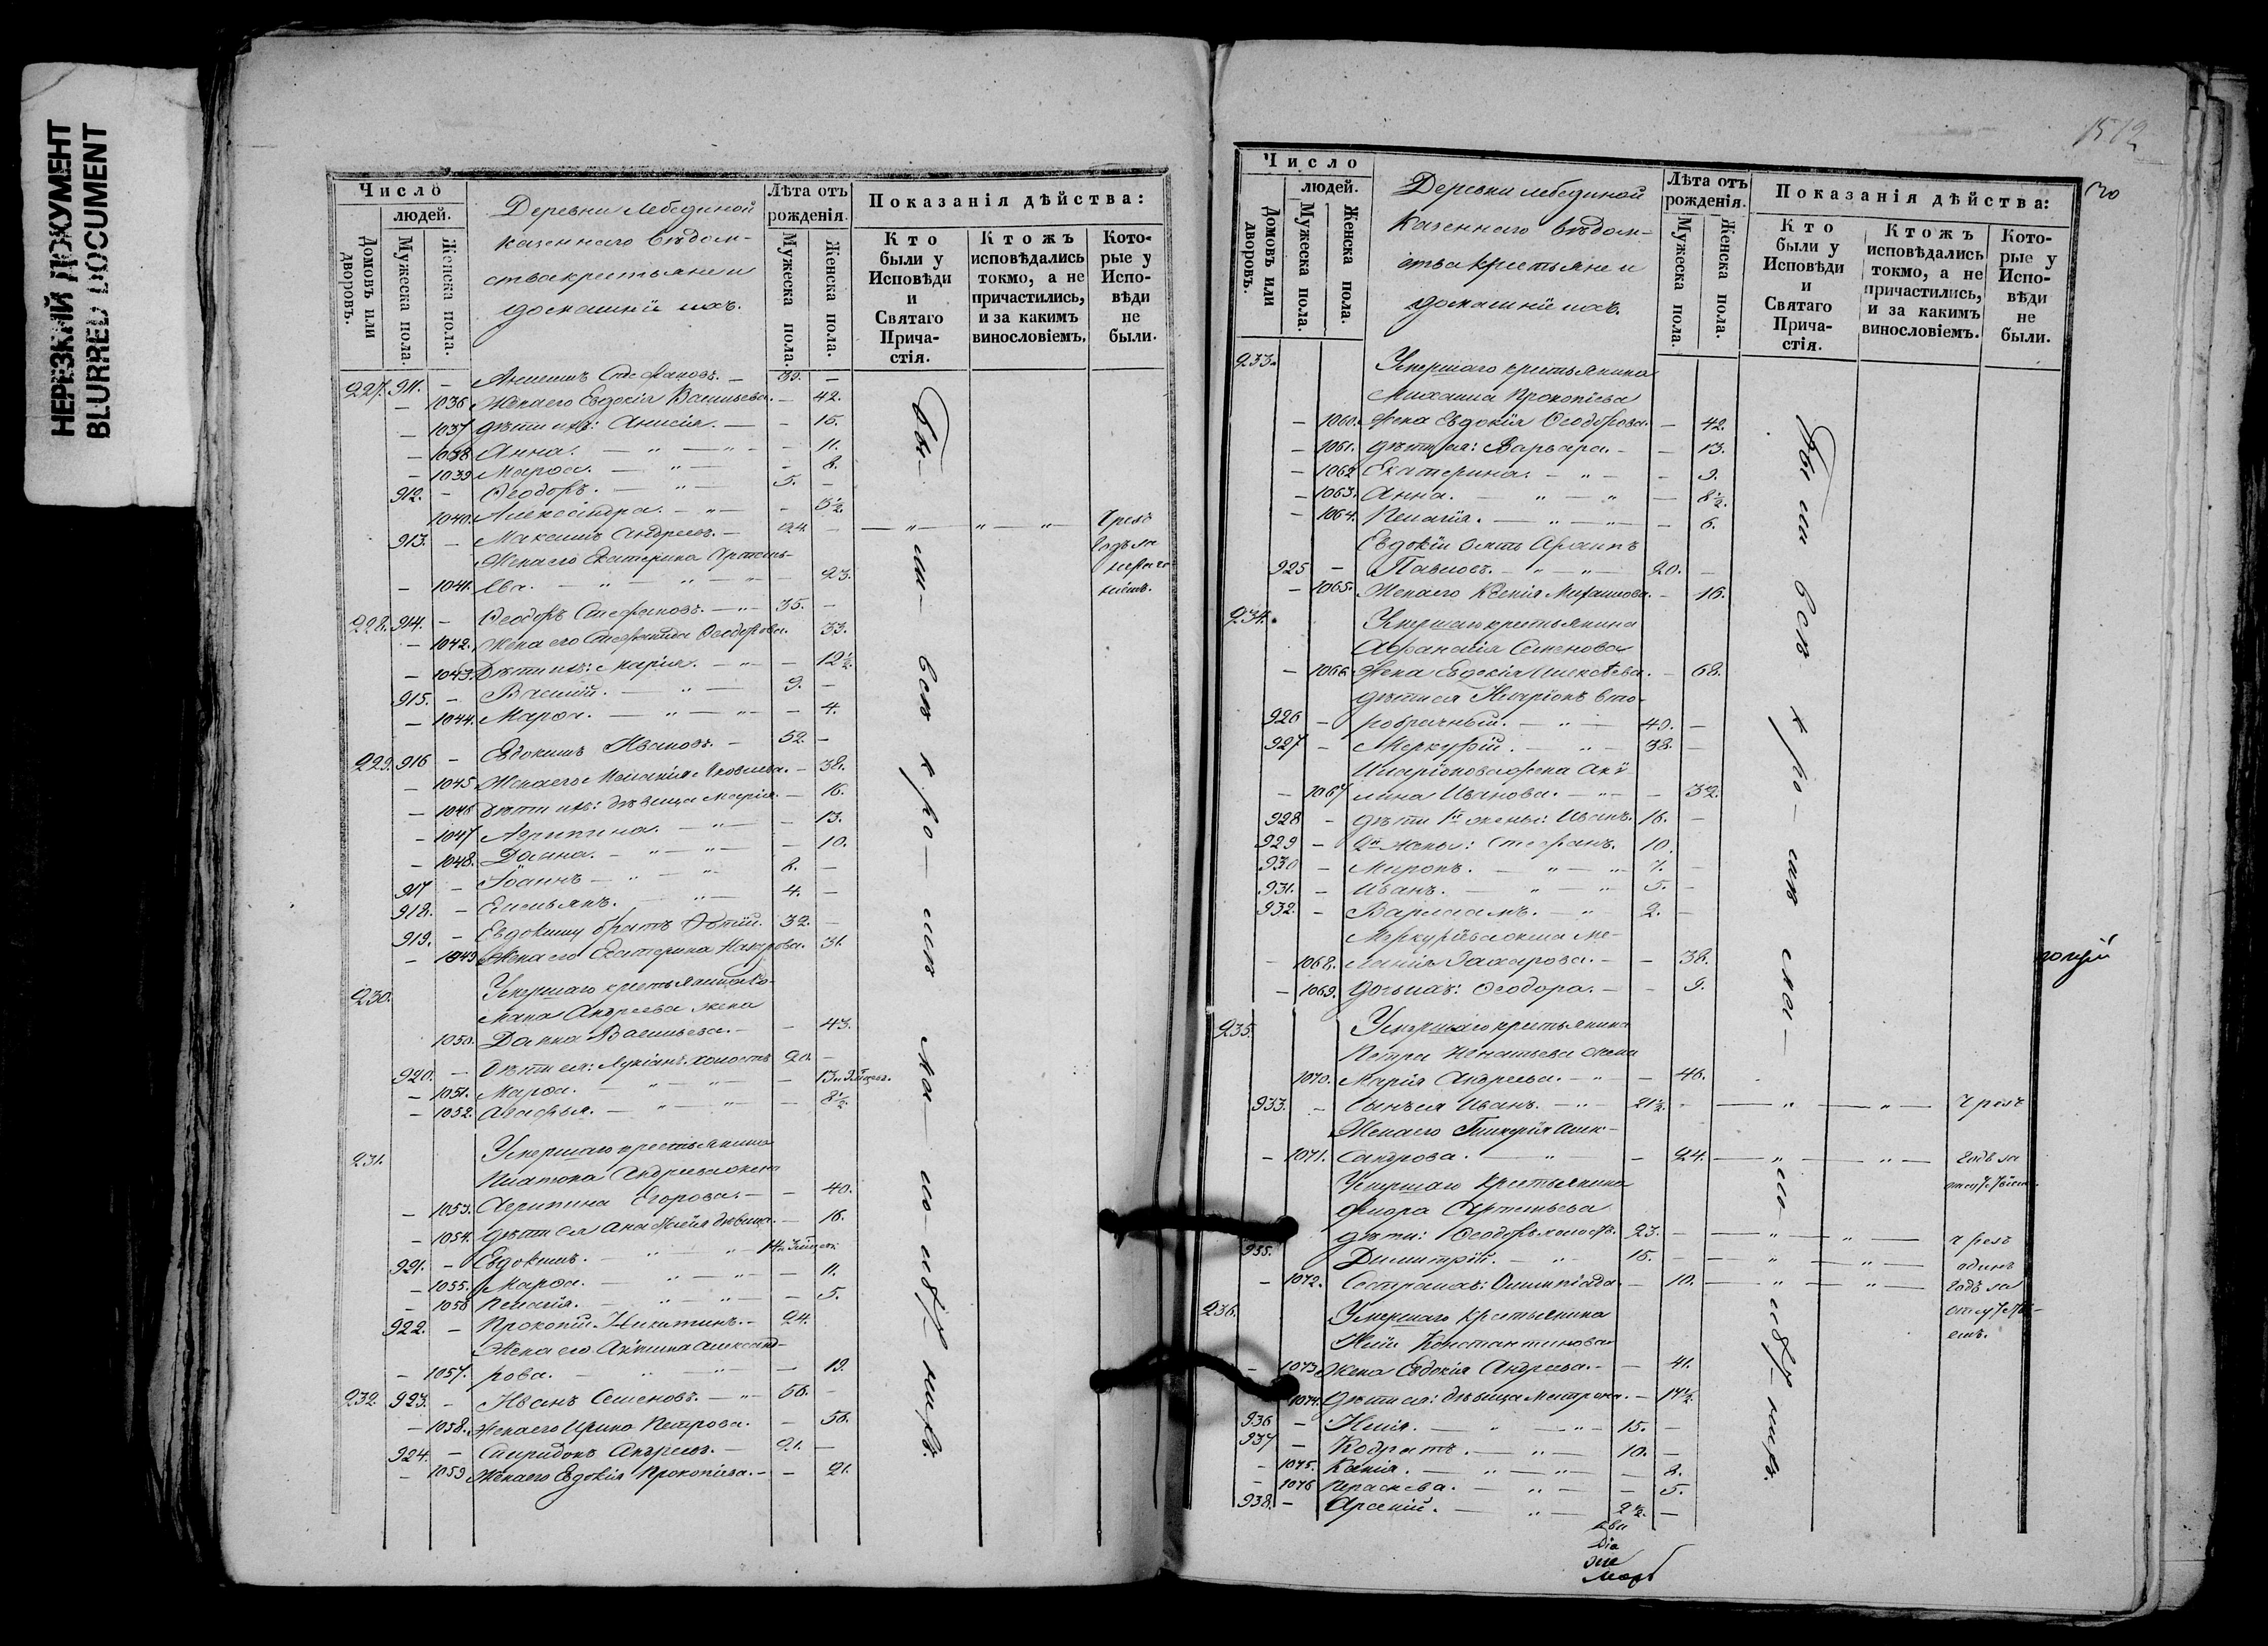 НЕРЕЗКИЙ ДОКУМЕНТ
BLURRED DOCUMENT
Число
людей.
Домовъ или дворовъ.
Мужеска пола.
Женска пола.
Деревни Лебединой
казеннаго ведом-
ства крестьяне и
домашнїи ихъ.
Лѣта отъ рожденія.
Мужеска пола.
Женска пола.
Показанія дѣйства:
Кто были у Исповѣди и Святаго Прича-стія.
Ктожъ исповѣдались токмо, а не причастились, и за какимъ винословіемъ.
Кото-рые у Испо-вѣди не были.
227. 911. — Стефановъ. — 39. —
— 1036 Жена его Евдокія Васильева. — 42.
— 1037 Дѣти ихъ: Анисія. — — 15.
— 1038 Анна. — " — " — 11.
— 1039 Марѳа. — " — — 8.
912. — Ѳеодоръ. — " — 5. —
1040. — " — — 3½.
913. — Максимъ Андреевъ. — 24. — — " — " — " — Чрезъ
Жена его Екатерина годъ за
— 1041. ева. — " — " — " — 23.
228. 914. — Ѳеодоръ Стефановъ. — " — 35. —
— 1042. Жена его Ѳеодорова. 33.
— 1043. Дѣти ихъ: Марія. — " — — 12½.
915. — Василій. — " — 9. —
— 1044. Марѳа. — " — " — — 4.
229. 916 — Евдокимъ Ивановъ. — 52. —
— 1045 Жена его Меланія Яковлева. — 38.
— 1046 Дѣти ихъ: дѣвица Марія. — 16.
— 1047 Агрипина. — " — — 13.
— 1048. Домна. — " — " — — 10.
917 — Іоаннъ — " — " 8. —
918. — Емельянъ. — " — 4. —
919. — Евдокиму братъ 32. —
— 1049 Жена его Екатерина Назарова. 31.
230. Умершаго крестьянина Ро-
мана Андреева жена
1050. Домна Васильева. — — 43.
920. — Дѣти ея: Лукіанъ холостъ 20. —
— 1051. Марѳа. — " — " — 13
— 1052. Агафья. — " — " — — 8½.
231. Умершаго крестьянина
Платона Андреева жена
— 1053. Агрипина Егорова. — — 40.
— 1054. Дѣти ея дѣвица. — 16.
921. — Евдокимъ. — " — " 14
— 1055. Марѳа. — " — " — — 11.
— 1056 Пелагія. — " — " — — 5.
922. — Прокопій Никитинъ. — 24.
Жена его Акилина Александ-
— 1057. рова. — " — " — 19.
232 923. — Иванъ Семеновъ. — " — 56. —
— 1058. Жена его Ирина Петрова. — 56.
924. — Спиридонъ Андреевъ. — 21. —
— 1059 Жена его Евдокія Прокопіева. — — 21.
Бы — ли — всѣ к ро — мѣ ма — ло — лѣт нихъ
1512
Число
людей.
Домовъ или дворовъ.
Мужеска пола.
Женска пола.
Деревни Лебединой
Казеннаго ведом-
ства крестьяне и
домашнїи ихъ.
Лѣта отъ рожденія.
Мужеска пола.
Женска пола.
Показанія дѣйства:
Кто были у Исповѣди и Святаго Прича-стія.
Ктожъ исповѣдались токмо, а не причастились, и за какимъ винословіемъ.
Кото-рые у Испо-вѣди не были.
233. Умершаго крестьянина
Михаила Прокопіева
— 1060. Жена Евдокія Ѳеодорова. — 42.
— 1061. Дѣти ея: Варвара. — — 13.
— 1062 Екатерина. — " — — 9.
— 1063. Анна. — " — " — 8½.
— 1064. Пелагія. — " — " — 6.
Евдокїи зять
925 — Павловъ. — " — " — 20. —
— 1065. Жена его Ксенія Михаилова. — 16.
234. Умершаго крестьянина
Афанасія Семенова
— 1066 Жена Евдокія Алексѣева. — 68.
дѣти ея Иларіонъ вто-
926 — робрачный. — " — 40. —
927 — Меркурій. — " — 38. —
Иларіонова жена Аку-
— 1067 лина Иванова. — " — — 32.
928 — дѣти 1й жены: Иванъ. 16. —
929 — 2й жены: Стефанъ. 10.
930 — Миронъ. — " — " 7. —
931. — Иванъ. — " — " 5. —
932. — Варлаамъ. — " 2. —
Меркурїева жена Ме-
— 1068. ланія Захарова. — — 38.
— 1069. Дочь ихъ: Ѳеодора. — — 9.
235. Умершаго крестьянина
Петра Игнатьева жена
1070. Марія Андреева. — " — 46.
933. — Сынъ ея Иванъ. — " — 21½. — — " — " — чрезъ
Жена его Гликерія Алек-
— 1071. сандрова. — " — 24. — " — " — годъ за
Умершаго крестьянина
Артемьева
дѣти: Ѳеодоръ холостъ. 23. — — " — " — чрезъ
935. Димитрій. — " 15. — — " — " — одинъ
— 1072. Сестра ихъ: Олимпіада — 10. — " — " годъ за
236. Умершаго крестьянина
Иліи Константинова
— 1073 Жена Евдокія Андреева. — — 41.
1074. Дѣти ея: дѣвица Матрона. — 17½.
936 — Илія. — " — " — 15. —
937 — Кодратъ. — " — 10. —
— 1075. Ксенія. — " — " — — 8.
— 1076 Параскева. — " — — 5.
938. — Арсеній. — " — 2½. —
Бы ли всѣ к ро — мѣ ма — ло — лѣт нихъ